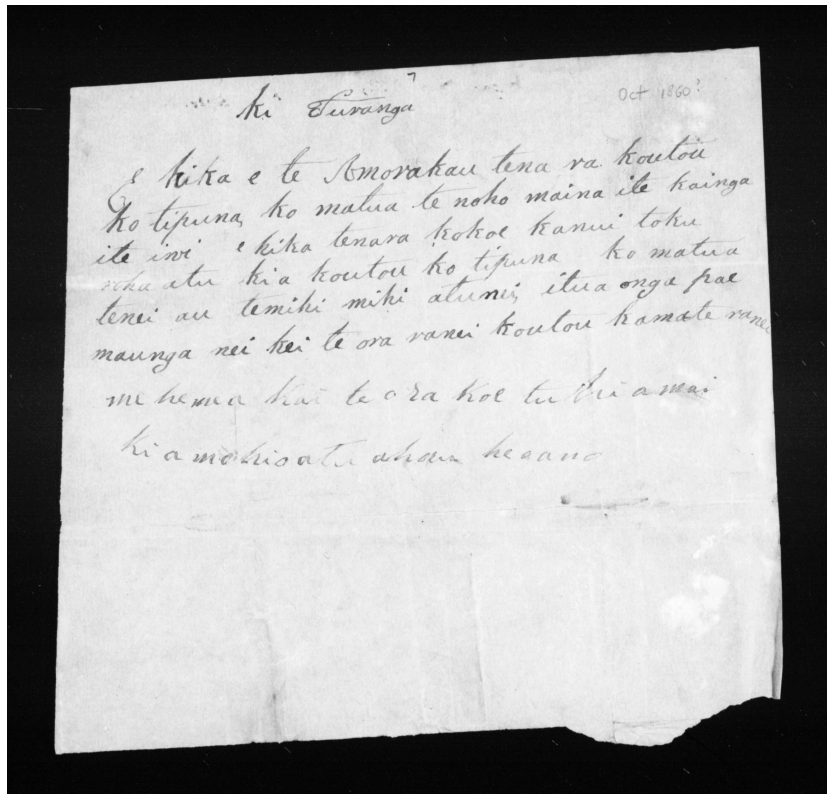 Oct 1860?
ki Turanga
E hika e te Amorakau tena ra koutou
ko tipuna, ko matua te noho maina ite kainga
ite iwi e hika tenara kokoe kanui toku
roha atu kia koutou ko tipuna ko matua
tenei au temihi mihi atunei, itua onga pae
maunga nei kei te ora ranei koutou kamate ranei
mehemea kai te ora koe tuhi a mai
ki a mohio atu ahau